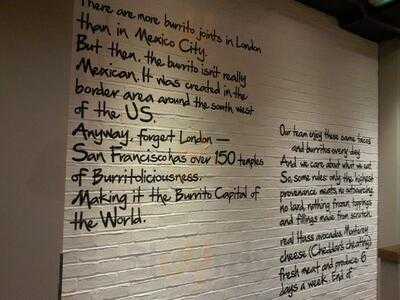 There are more burrito joints in London
than in Mexico City.
But then, the burrito isn't really
Mexican. It was created in the
border area around the south west
of the US.
Anyway, forget London –
San Francisco has over 150 temples
of Burritoliciousness.
Making it the Burrito Capital of
the World.
Our team enjoy these same tacos
and burritos every day.
And we care about what we eat.
So, some rules: only the highest
provenance meats, no outsourcing,
no lard, nothing frozen, toppings
and fillings made from scratch,
real Hass avocados, Monterey
cheese (Cheddar's cheating),
fresh meat and produce 6
days a week. End of